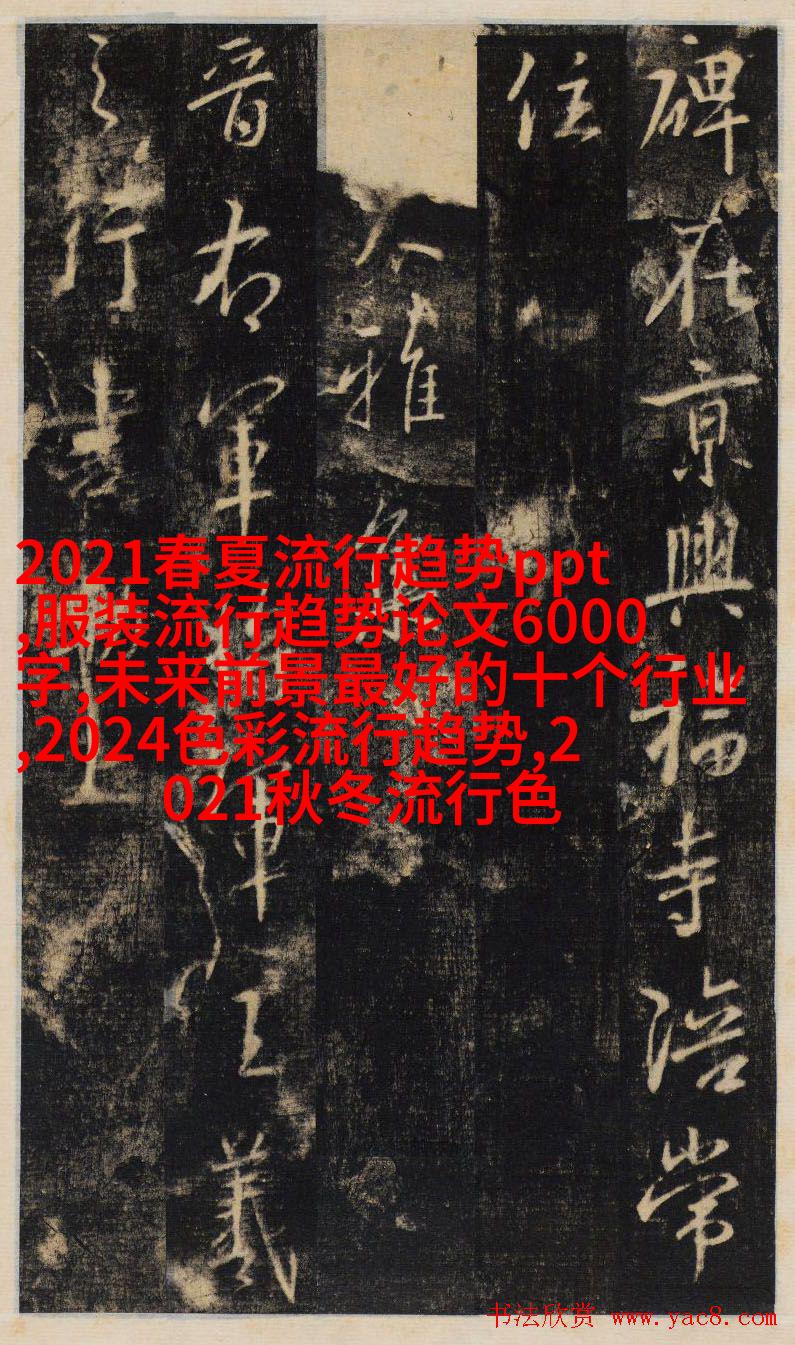 碑在京興福寺陪常
住
雅
晉右軍軍王羲
之行書
2021春夏流行趋势ppt
,服装流行趋势论文6000
字,未来前景最好的十个行业
,2024色彩流行趋势,2
021秋冬流行色
书法欣赏 www.yac8.com